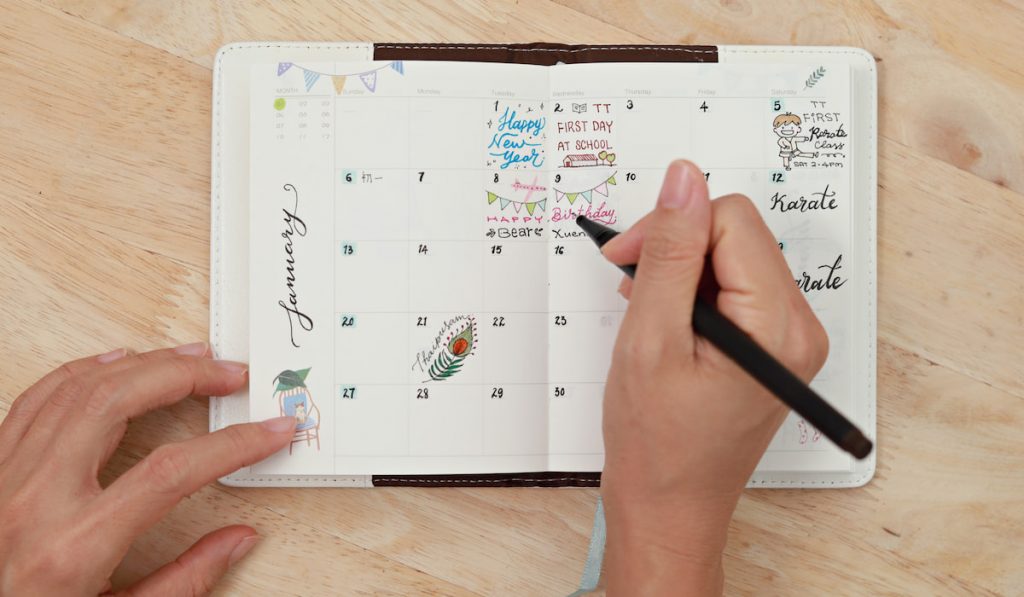 MONTH
Sunday Monday Tuesday Wednesday Thursday Friday Saturday
January
1
Happy
New
Year
2 TT
FIRST DAY
AT SCHOOL
3
4
5
TT
FIRST
Karate
Class
SAT 2-4PM
6 初一
7
8
HAPPY
Bear
9
Birthday
10
12
Karate
13
14
15
16
20
21
Thaipusam
22
23
27
28
29
30